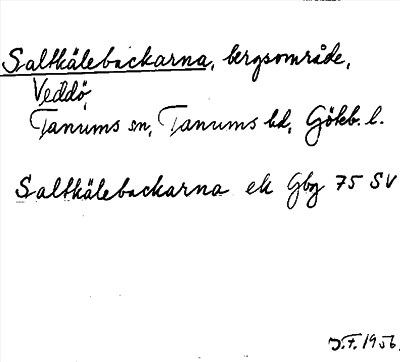 Saltkälebackarna, bergsområde,
Veddö,
Tanums sn, Tanums hd, Gökb. l.
Saltkälebackarna ek Gbg 75 SV
J.F. 1956.